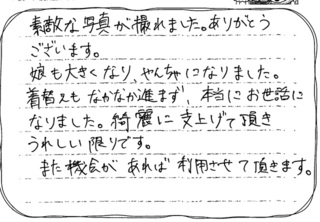 素敵な写真が撮れました。ありがとう
ございます。
娘も大きくなり、やんちゃになりました。
着替えもなかなか進まず、本当にお世話に
なりました。綺麗に支上げて頂き
うれしい限りです。
また機会があれば利用させて頂きます。